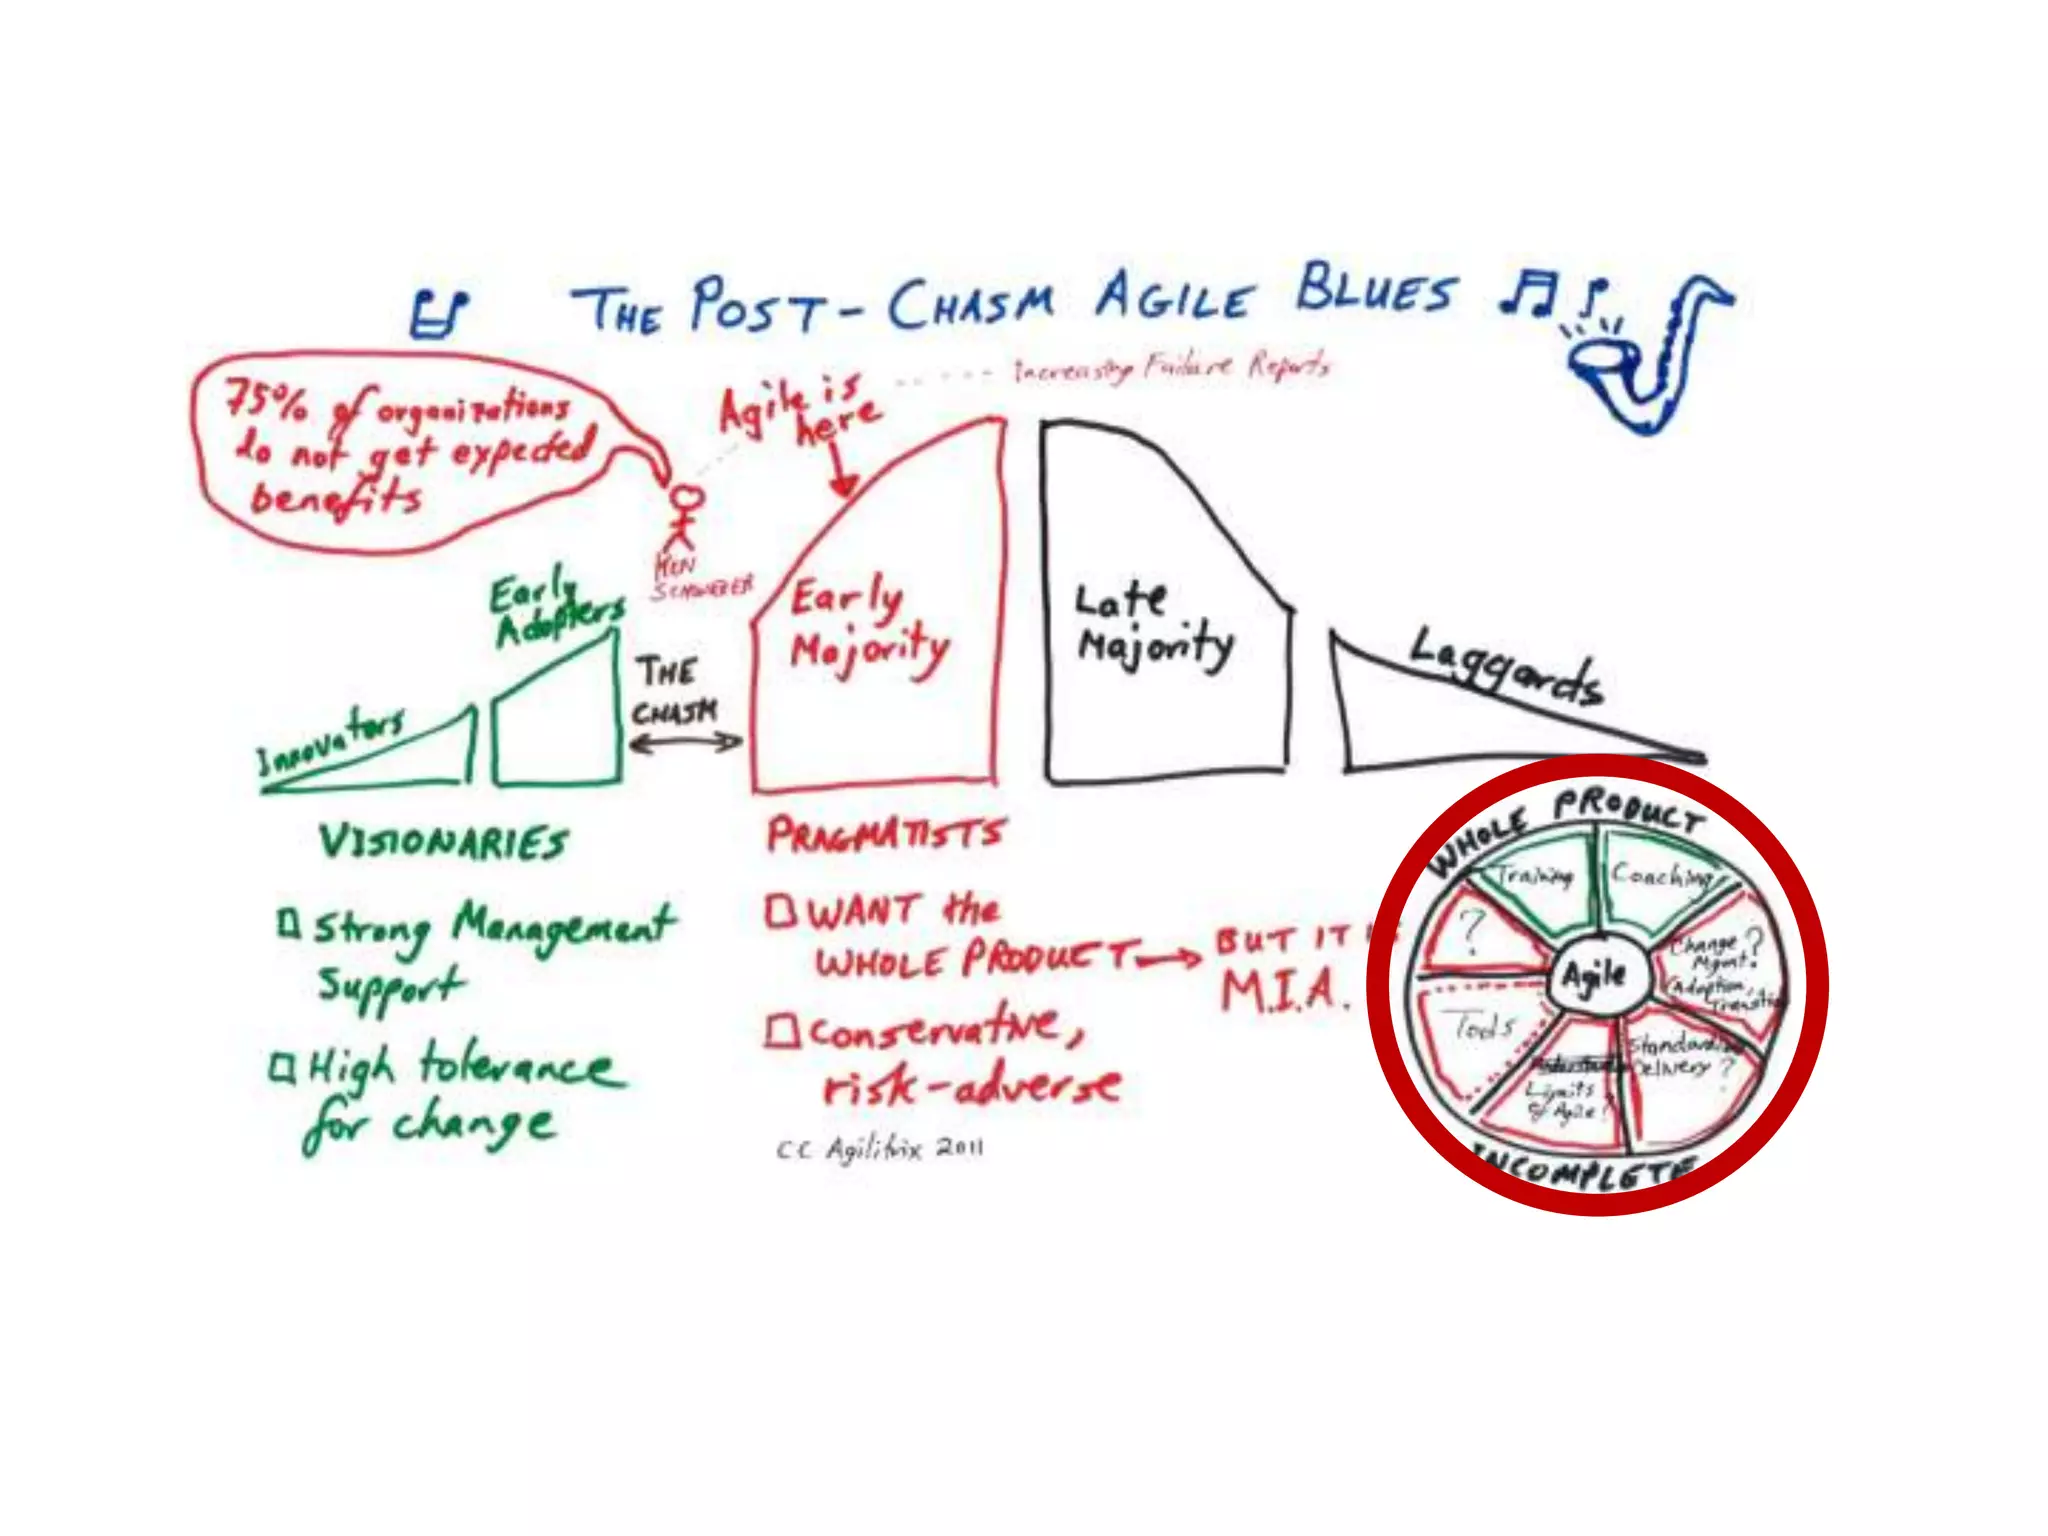 THE POST-CHASM AGILE BLUES
75% of organizations
do not get expected
benefits
KEN
SCHWEBER
Agile is
here
Increasing Failure Reports
Innovators
Early
Adopters
THE
CHASM
Early
Majority
Late
Majority
Laggards
VISIONARIES
Strong Management
Support
High tolerance
for change
PRAGMATISTS
WANT the
WHOLE PRODUCT
BUT IT
M.I.A.
Conservative,
risk-adverse
CC Agilitrix 2011
WHOLE PRODUCT
Training
Coaching
?
Agile
Change ?
Mgmt.
Tools
Delivery ?
Limits
of Agile?
INCOMPLETE